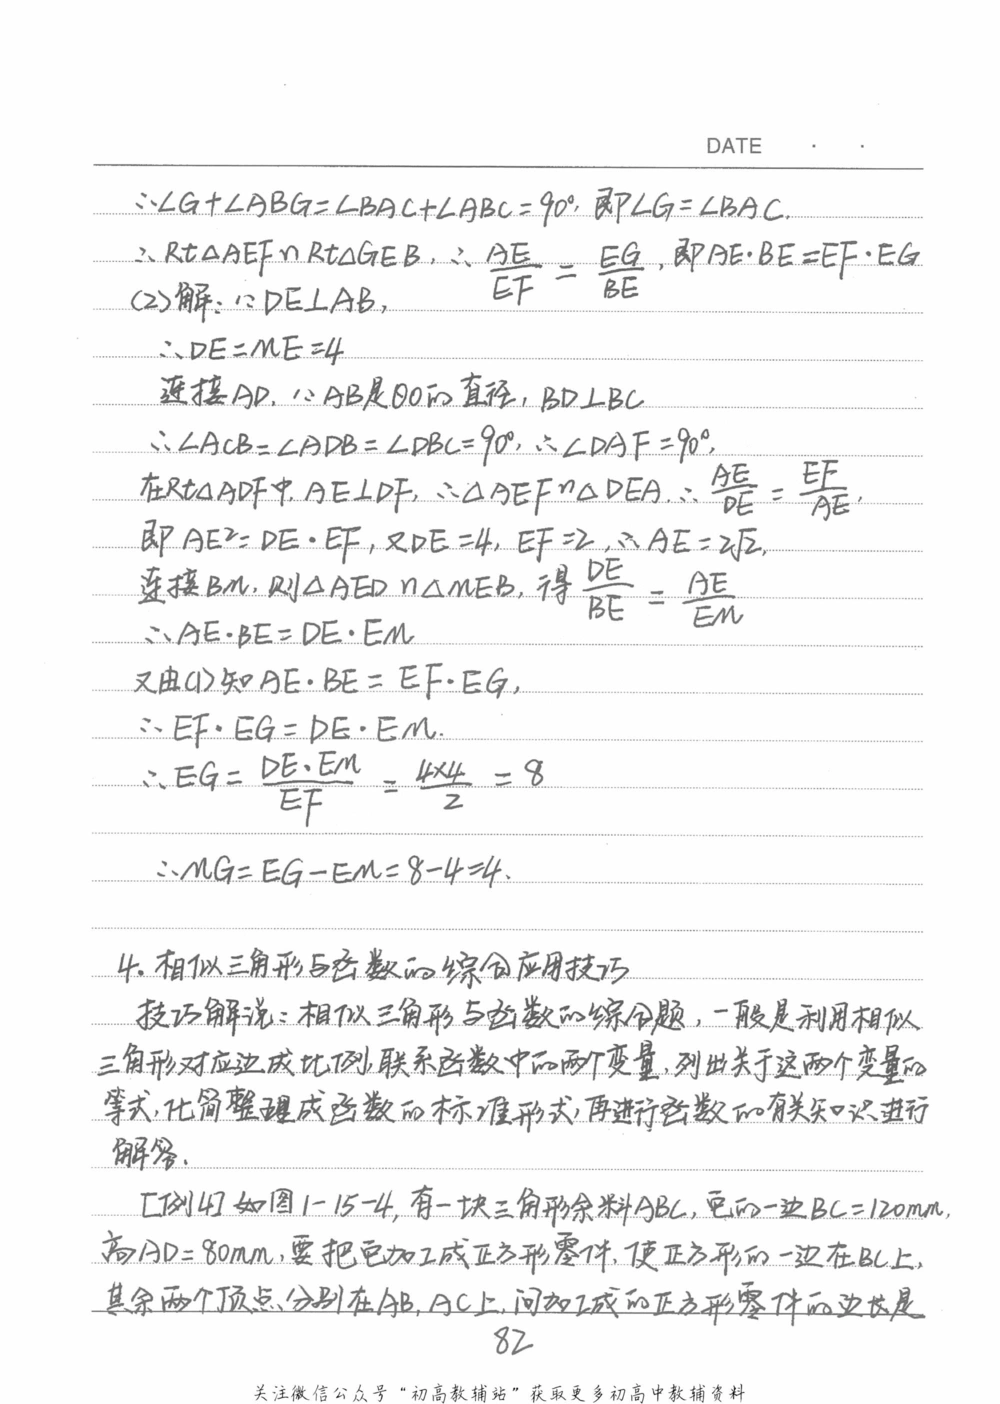 DATE · ·
∴∠G+∠ABG=∠BAC+∠ABC=90°, 即∠G=∠BAC.
∴Rt△AEF∽Rt△GEB, ∴ AE/EF = EG/BE, 即AE·BE=EF·EG
(2)解: ∵DE⊥AB,
∴DE=ME=4
连接AD, ∵AB是⊙O的直径, BD⊥BC
∴∠ACB=∠ADB=∠DBC=90°, ∴∠DAF=90°,
在Rt△ADF中, AE⊥DF, ∴△AEF∽△DEA, ∴ AE/DE = EF/AE,
即AE²=DE·EF, 又DE=4, EF=2, ∴AE=2√2,
连接BM, 则△AED∽△MEB, 得 DE/BE = AE/EM
∴AE·BE=DE·EM
又由(1)知AE·BE=EF·EG,
∴EF·EG=DE·EM.
∴EG= DE·EM/EF = 4×4/2 = 8
∴MG=EG-EM=8-4=4.
4. 相似三角形与函数的综合应用技巧
技巧解说: 相似三角形与函数的综合题, 一般是利用相似
三角形对应边成比例, 联系函数中的两个变量, 列出关于这两个变量的
等式, 化简整理成函数的标准形式, 再进行函数的有关知识进行
解答.
[例4] 如图1-15-4, 有一块三角形余料ABC, 它的一边BC=120mm,
高AD=80mm, 要把它加工成正方形零件, 使正方形的一边在BC上,
其余两个顶点分别在AB, AC上, 问加工成的正方形零件的边长是
82
关注微信公众号“初高教辅站”获取更多初高中教辅资料